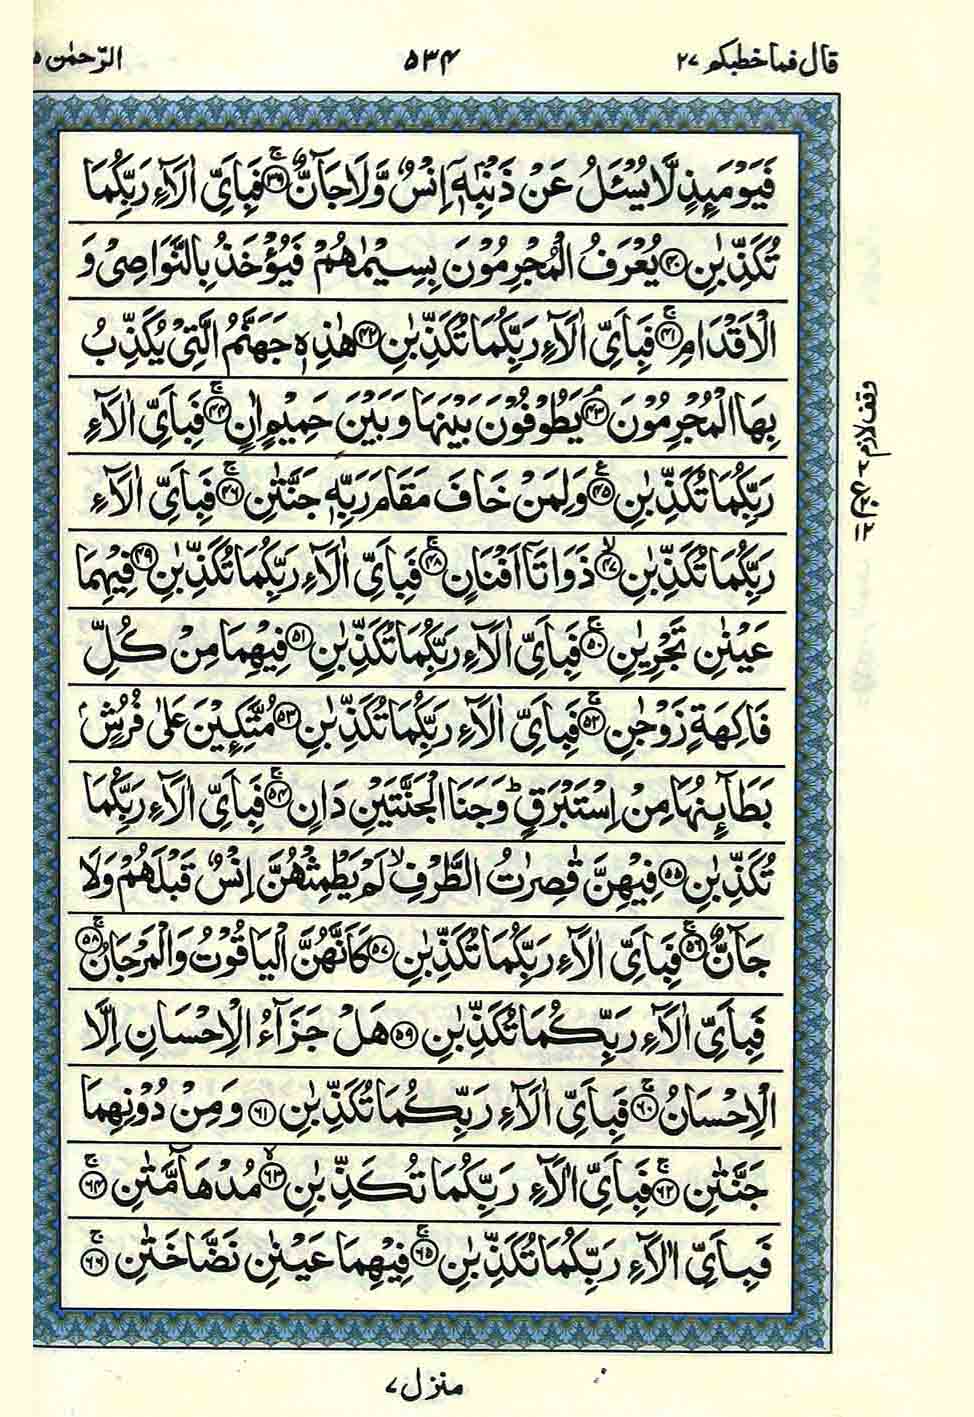 قال فما خطبكم ٢٧
٥٣٤
الرّحمٰن ٥
فَيَوْمَىِٕذٍ لَّا يُسْـَٔلُ عَنْ ذَنْۢبِهٖۤ اِنْسٌ وَّلَا جَآنٌّ ۚ‏﴿۳۹﴾ فَبِاَىِّ اٰلَاۤءِ رَبِّكُمَا
تُكَذِّبٰنِ ﴿۴۰﴾ يُعْرَفُ الْمُجْرِمُوْنَ بِسِيْمٰهُمْ فَيُؤْخَذُ بِالنَّوَاصِىْ وَ
الْاَقْدَامِ ۚ﴿۴۱﴾ فَبِاَىِّ اٰلَاۤءِ رَبِّكُمَا تُكَذِّبٰنِ ﴿۴۲﴾ هٰذِهٖ جَهَنَّمُ الَّتِىْ يُكَذِّبُ
بِهَا الْمُجْرِمُوْنَ ۘ﴿۴۳﴾ يَطُوْفُوْنَ بَيْنَهَا وَبَيْنَ حَمِيْمٍ اٰنٍ ۚ﴿۴۴﴾ فَبِاَىِّ اٰلَاۤءِ
رَبِّكُمَا تُكَذِّبٰنِ ﴿۴۵﴾ وَلِمَنْ خَافَ مَقَامَ رَبِّهٖ جَنَّتٰنِ ۚ﴿۴۶﴾ فَبِاَىِّ اٰلَاۤءِ
رَبِّكُمَا تُكَذِّبٰنِ ۙ﴿۴۷﴾ ذَوَاتَاۤ اَفْنَانٍ ۚ﴿۴۸﴾ فَبِاَىِّ اٰلَاۤءِ رَبِّكُمَا تُكَذِّبٰنِ ﴿۴۹﴾ فِيْهِمَا
عَيْنٰنِ تَجْرِيٰنِ ۚ﴿۵۰﴾ فَبِاَىِّ اٰلَاۤءِ رَبِّكُمَا تُكَذِّبٰنِ ﴿۵۱﴾ فِيْهِمَا مِنْ كُلِّ
فَاكِهَةٍ زَوْجٰنِ ۚ﴿۵۲﴾ فَبِاَىِّ اٰلَاۤءِ رَبِّكُمَا تُكَذِّبٰنِ ﴿۵۳﴾ مُتَّكِـِٕيْنَ عَلٰى فُرُشٍۭ
بَطَآىِٕنُهَا مِنْ اِسْتَبْرَقٍ ؕ وَجَنَا الْجَنَّتَيْنِ دَانٍ ۚ﴿۵۴﴾ فَبِاَىِّ اٰلَاۤءِ رَبِّكُمَا
تُكَذِّبٰنِ ﴿۵۵﴾ فِيْهِنَّ قٰصِرٰتُ الطَّرْفِ ۙ لَمْ يَطْمِثْهُنَّ اِنْسٌ قَبْلَهُمْ وَلَا
جَآنٌّ ۚ﴿۵۶﴾ فَبِاَىِّ اٰلَاۤءِ رَبِّكُمَا تُكَذِّبٰنِ ﴿۵۷﴾ كَاَنَّهُنَّ الْيَاقُوْتُ وَالْمَرْجَانُ ۚ﴿۵۸﴾
فَبِاَىِّ اٰلَاۤءِ رَبِّكُمَا تُكَذِّبٰنِ ﴿۵۹﴾ هَلْ جَزَآءُ الْاِحْسَانِ اِلَّا
الْاِحْسَانُ ۚ﴿۶۰﴾ فَبِاَىِّ اٰلَاۤءِ رَبِّكُمَا تُكَذِّبٰنِ ﴿۶۱﴾ وَمِنْ دُوْنِهِمَا
جَنَّتٰنِ ۚ﴿۶۲﴾ فَبِاَىِّ اٰلَاۤءِ رَبِّكُمَا تُكَذِّبٰنِ ۙ﴿۶۳﴾ مُدْهَآمَّتٰنِ ۚ﴿۶۴﴾
فَبِاَىِّ اٰلَاۤءِ رَبِّكُمَا تُكَذِّبٰنِ ۚ﴿۶۵﴾ فِيْهِمَا عَيْنٰنِ نَضَّاخَتٰنِ ۚ﴿۶۶﴾
وقف لازم
منزل ٧